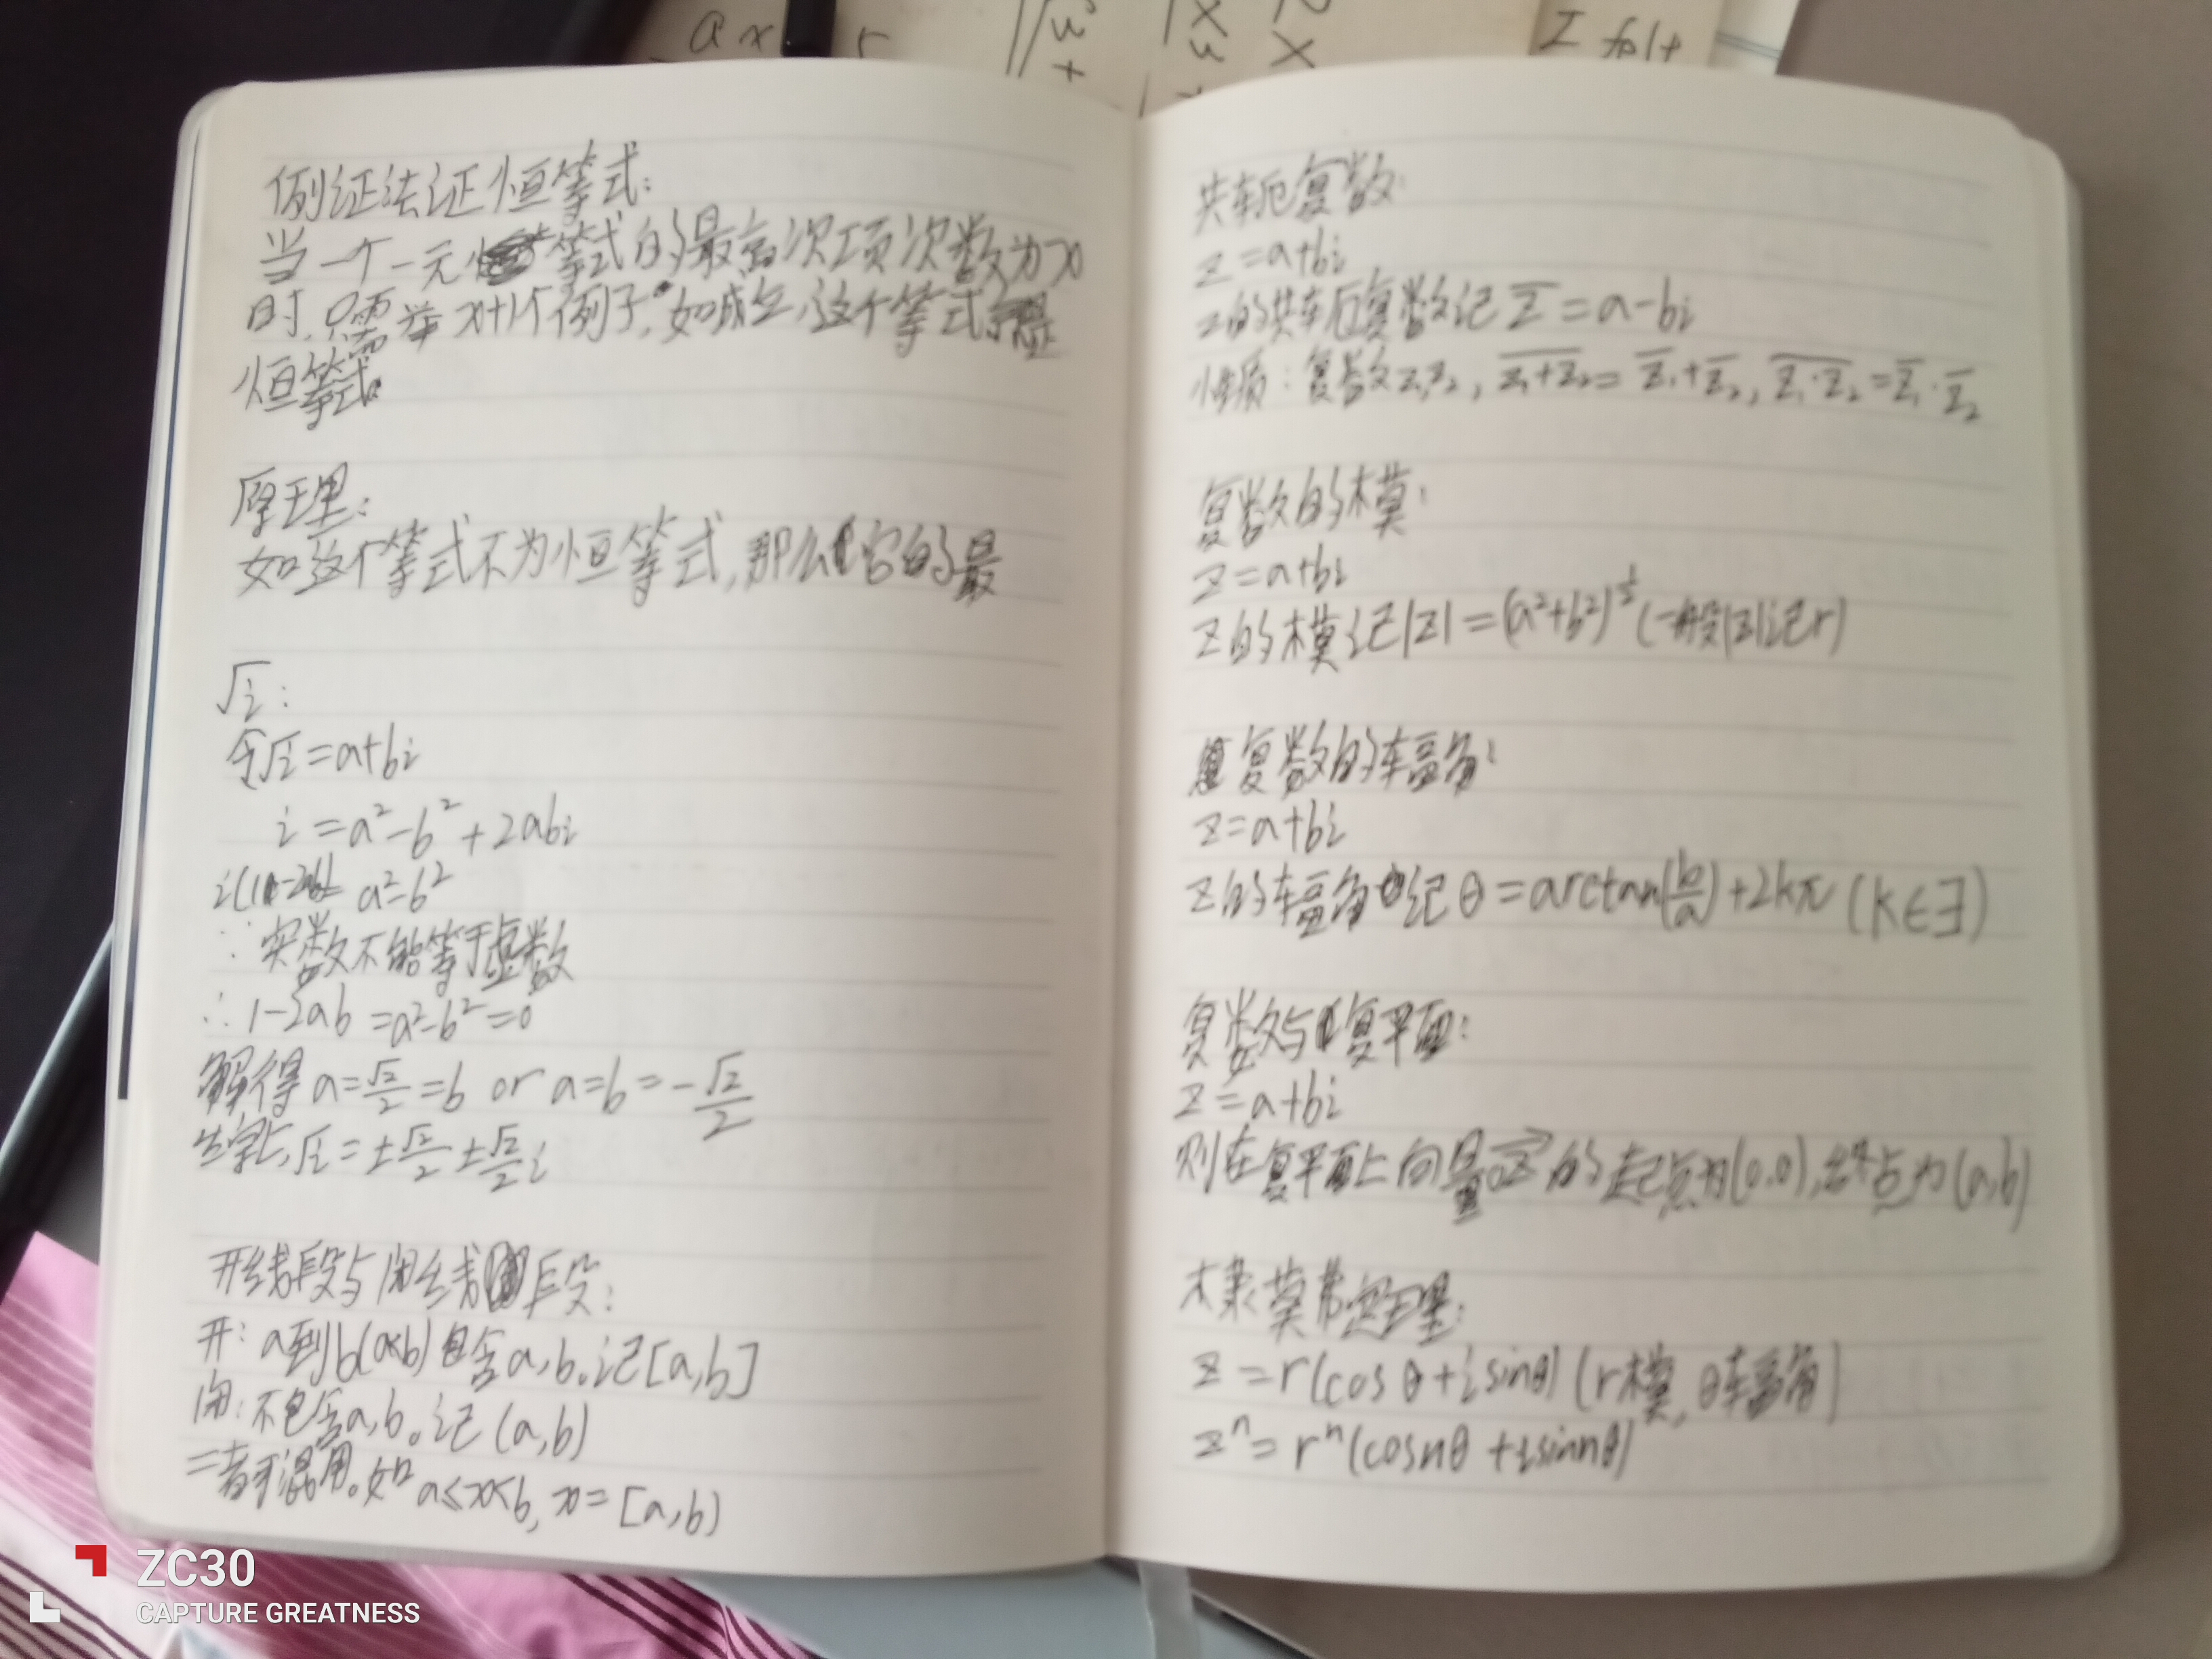 a x
I fort
例证法证恒等式:
当一个一元等式的最高次项次数为x
时,只需举x+1个例子,如成立,这个等式是
恒等式。
原理:
如这个等式不为恒等式,那么它的最
√i:
令√i=a+bi
i=a²-b²+2abi
i(1-2ab)=a²-b²
∵实数不能等于虚数
∴1-2ab=a²-b²=0
解得a=√2/2=b or a=b=-√2/2
综上,√i=±√2/2±√2/2i
开线段与闭线段:
开:a到b(a<b)包含a,b。记[a,b]
闭:不包含a,b。记(a,b)
二者可混用。如a≤x<b,x=[a,b)
共轭复数:
z=a+bi
z的共轭复数记z̅=a-bi
性质:复数z₁z₂,z̅₁̅+̅z̅₂̅=z̅₁+z̅₂,z̅₁̅·̅z̅₂̅=z̅₁·z̅₂
复数的模:
z=a+bi
z的模记|z|=(a²+b²)^½(一般|z|记r)
复数的辐角:
z=a+bi
z的辐角记θ=arctan(b/a)+2kπ(k∈∃)
复数与复平面:
z=a+bi
则在复平面上向量oz→的起点为(0,0),终点为(a,b)
棣莫弗定理:
z=r(cosθ+isinθ)(r模,θ辐角)
zⁿ=rⁿ(cosnθ+isinnθ)
ZC30
CAPTURE GREATNESS